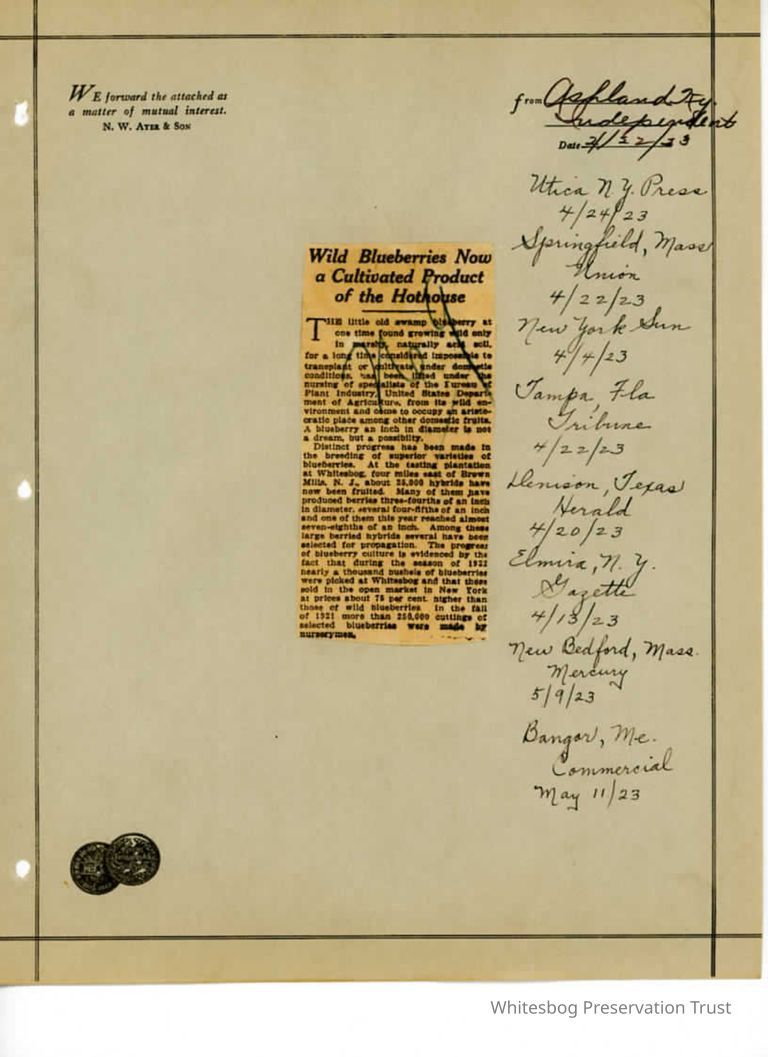 WE forward the attached as
a matter of mutual interest.
N. W. AYER & SON
from Ashland Ky.
Independent
Date
Utica N.Y. Press
4/24/23
Springfield, Mass
Union
4/22/23
New York Sun
4/4/23
Tampa, Fla
Tribune
4/22/23
Denison, Texas
Herald
4/20/23
Elmira, N. Y.
Gazette
4/13/23
New Bedford, Mass.
Mercury
5/9/23
Bangor, Me.
Commercial
May 11/23
Wild Blueberries Now
a Cultivated Product
of the Hothouse
THE little old swamp blueberry at
one time found growing wild only
in marshy, naturally acid soil,
for a long time considered impossible to
transplant or cultivate under domestic
conditions, has been lifted under the
nursing of specialists of the Bureau of
Plant Industry, United States Depart-
ment of Agriculture, from its wild en-
vironment and come to occupy an aristo-
cratic place among other domestic fruits.
A blueberry an inch in diameter is not
a dream, but a possibility.
Distinct progress has been made in
the breeding of superior varieties of
blueberries. At the testing plantation
at Whitesbog, four miles east of Brown
Mills, N. J., about 25,000 hybrids have
now been fruited. Many of them have
produced berries three-fourths of an inch
in diameter, several four-fifths of an inch
and one of them this year reached almost
seven-eighths of an inch. Among these
large berried hybrids several have been
selected for propagation. The progress
of blueberry culture is evidenced by the
fact that during the season of 1922
nearly a thousand bushels of blueberries
were picked at Whitesbog and that these
sold in the open market in New York
at prices about 75 per cent. higher than
those of wild blueberries. In the fall
of 1921 more than 250,000 cuttings of
selected blueberries were made by
nurserymen.
Whitesbog Preservation Trust